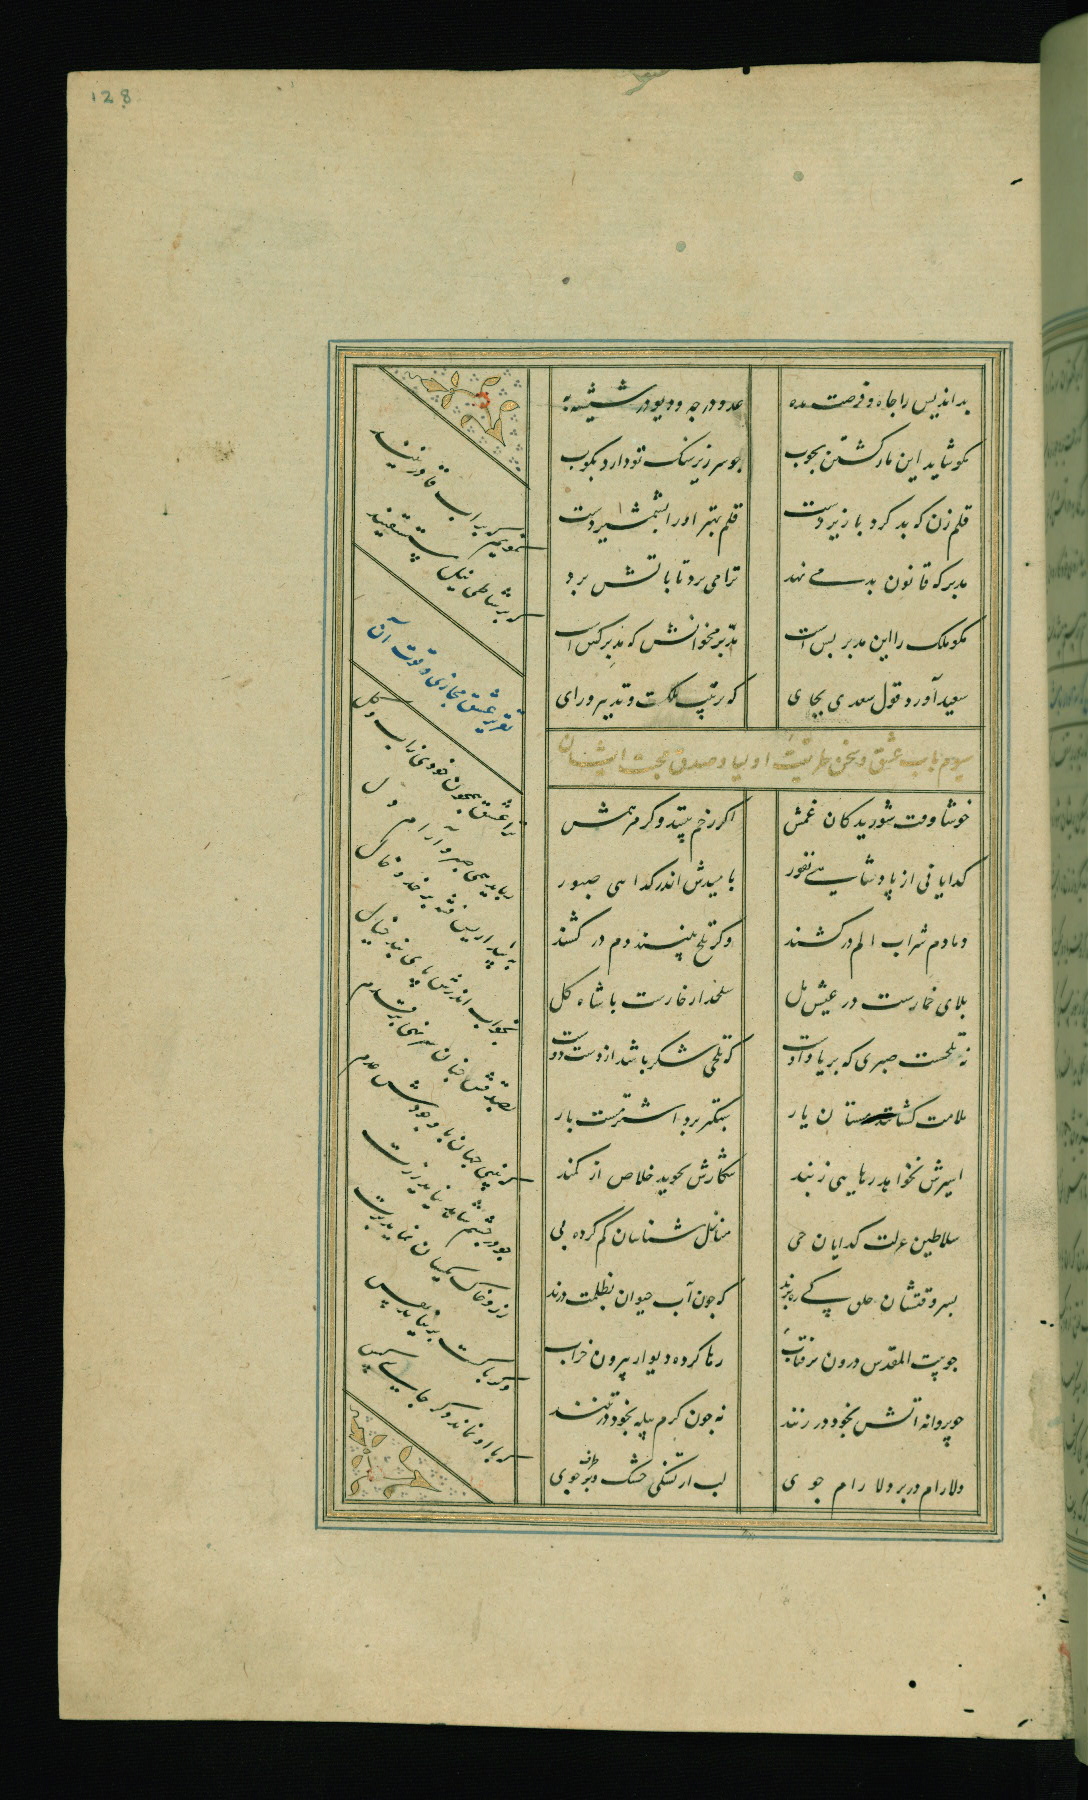 128
بداندیش را جاه و فرصت مده
عدو در چه و دیو در شیشه به
مگو شاید این مار کشتن بچوب
چو سر زیر سنک تو دارد بکوب
قلم زن که بد کرد با زیر دست
قلم بهتر او را بشمشیر دست
مدبر که قانون بد می نهد
ترا می برد تا باتش برد
مگو ملک را این مدبر بس است
مدبر مخوانش که مدبر کس است
سعید آورد قول سعدی بجای
که ترتیب ملکست و تدبیر و رای
سیوم باب عشق و سخن
اولیا و صدق محبت ایشان
خوشا وقت شوریدکان غمش
اکر زخم بینند و کر مرهمش
کدایانی از پادشاهی نفور
بامیدش اندر کدایی صبور
دمادم شراب الم درکشند
وکر تلخ بینند دم درکشند
بلای خمارست در عیش مل
سلحدار خارست با شاه کل
نه تلخست صبری که بر یاد اوست
که تلخی شکر باشد از دست دوست
ملامت کشانند مستان یار
سبکتر برد اشتر مست بار
اسیرش نخواهد رهایی ز بند
شکارش نجوید خلاص از کمند
سلاطین عزلت کدایان حی
منازل شناسان کم کرده پی
بسر وقتشان خلق کی ره برند
که چون آب حیوان بظلمت درند
چو بیت المقدس درون پر قباب
رها کرده دیوار بیرون خراب
چو پروانه آتش بخود در زنند
نه چون کرم پیله بخود در تنند
دلارام در بر دلارام جوی
لب از تشنکی خشک و بر طرف جوی
نکویم که بر آب قادر نیند
که بر شاطی نیل مستسقیند
تقریر عشق مجازی و قوت آن
ترا عشق همچون خودی ز آب و کل
رباید همی صبر و آرام دل
به بیداریش فتنه بر خد و خال
بخواب اندرش پای بند خیال
بصدقش چنان سر نهی بر قدم
که بینی جهان با وجودش عدم
چو در چشم شاهد نیاید زرت
زر و خاک یکسان نماید برت
دکر با کست بر نیاید نفس
که با او نماند دکر جای کس